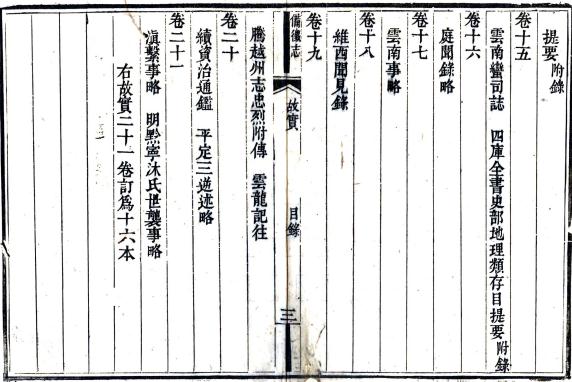 提要附錄
卷十五
雲南蠻司誌 四庫全書史部地理類存目提要附錄
卷十六
庭聞錄略
卷十七
雲南事略
卷十八
維西聞見錄
卷十九
備徵志 故實 目錄 三
騰越州志忠烈附傳 雲龍記往
卷二十
續資治通鑑 平定三逆述略
卷二十一
滇繫事略 明黔寧沐氏世襲事略
右故實二十一卷訂為十六本